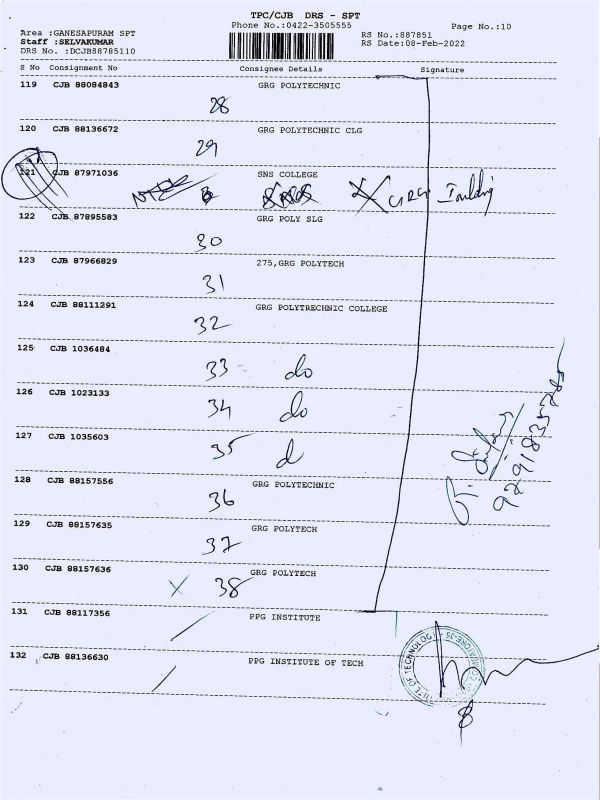 TPC/CJB DRS - SPT
Phone No.:0422-3505555
Page No.:10
Area :GANESAPURAM SPT
Staff :SELVAKUMAR
DRS No. :DCJB88785110
RS No.:887851
RS Date:08-Feb-2022
S No Consignment No Consignee Details Signature
119 CJB 88084843 GRG POLYTECHNIC
28
120 CJB 88136672 GRG POLYTECHNIC CLG
29
121 CJB 87971036 SNS COLLEGE
122 CJB 87895583 GRG POLY SLG
30
123 CJB 87966829 275,GRG POLYTECH
31
124 CJB 88111291 GRG POLYTRECHNIC COLLEGE
32
125 CJB 1036484
33 do
126 CJB 1023133
34 do
127 CJB 1035603
35 d
128 CJB 88157556 GRG POLYTECHNIC
36
129 CJB 88157635 GRG POLYTECH
37
130 CJB 88157636 GRG POLYTECH
X 38
131 CJB 88117356 PPG INSTITUTE
132 CJB 88136630 PPG INSTITUTE OF TECH